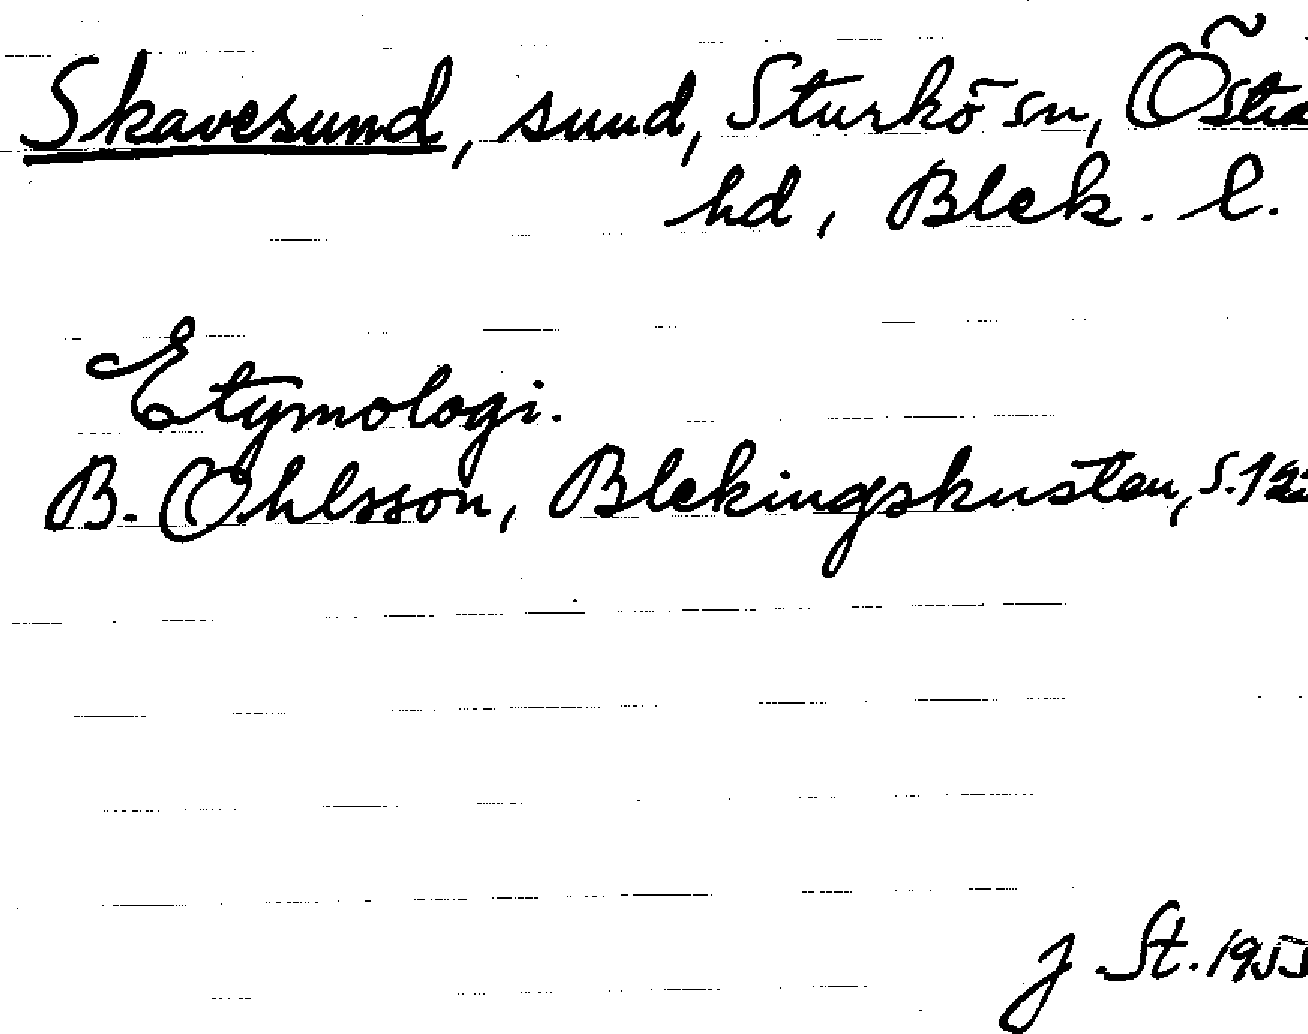 Skavesund, sund, Sturkö sn, Östra
hd, Blek. l.
Etymologi.
B. Ohlsson, Blekingskusten, s.
J. St. 1955